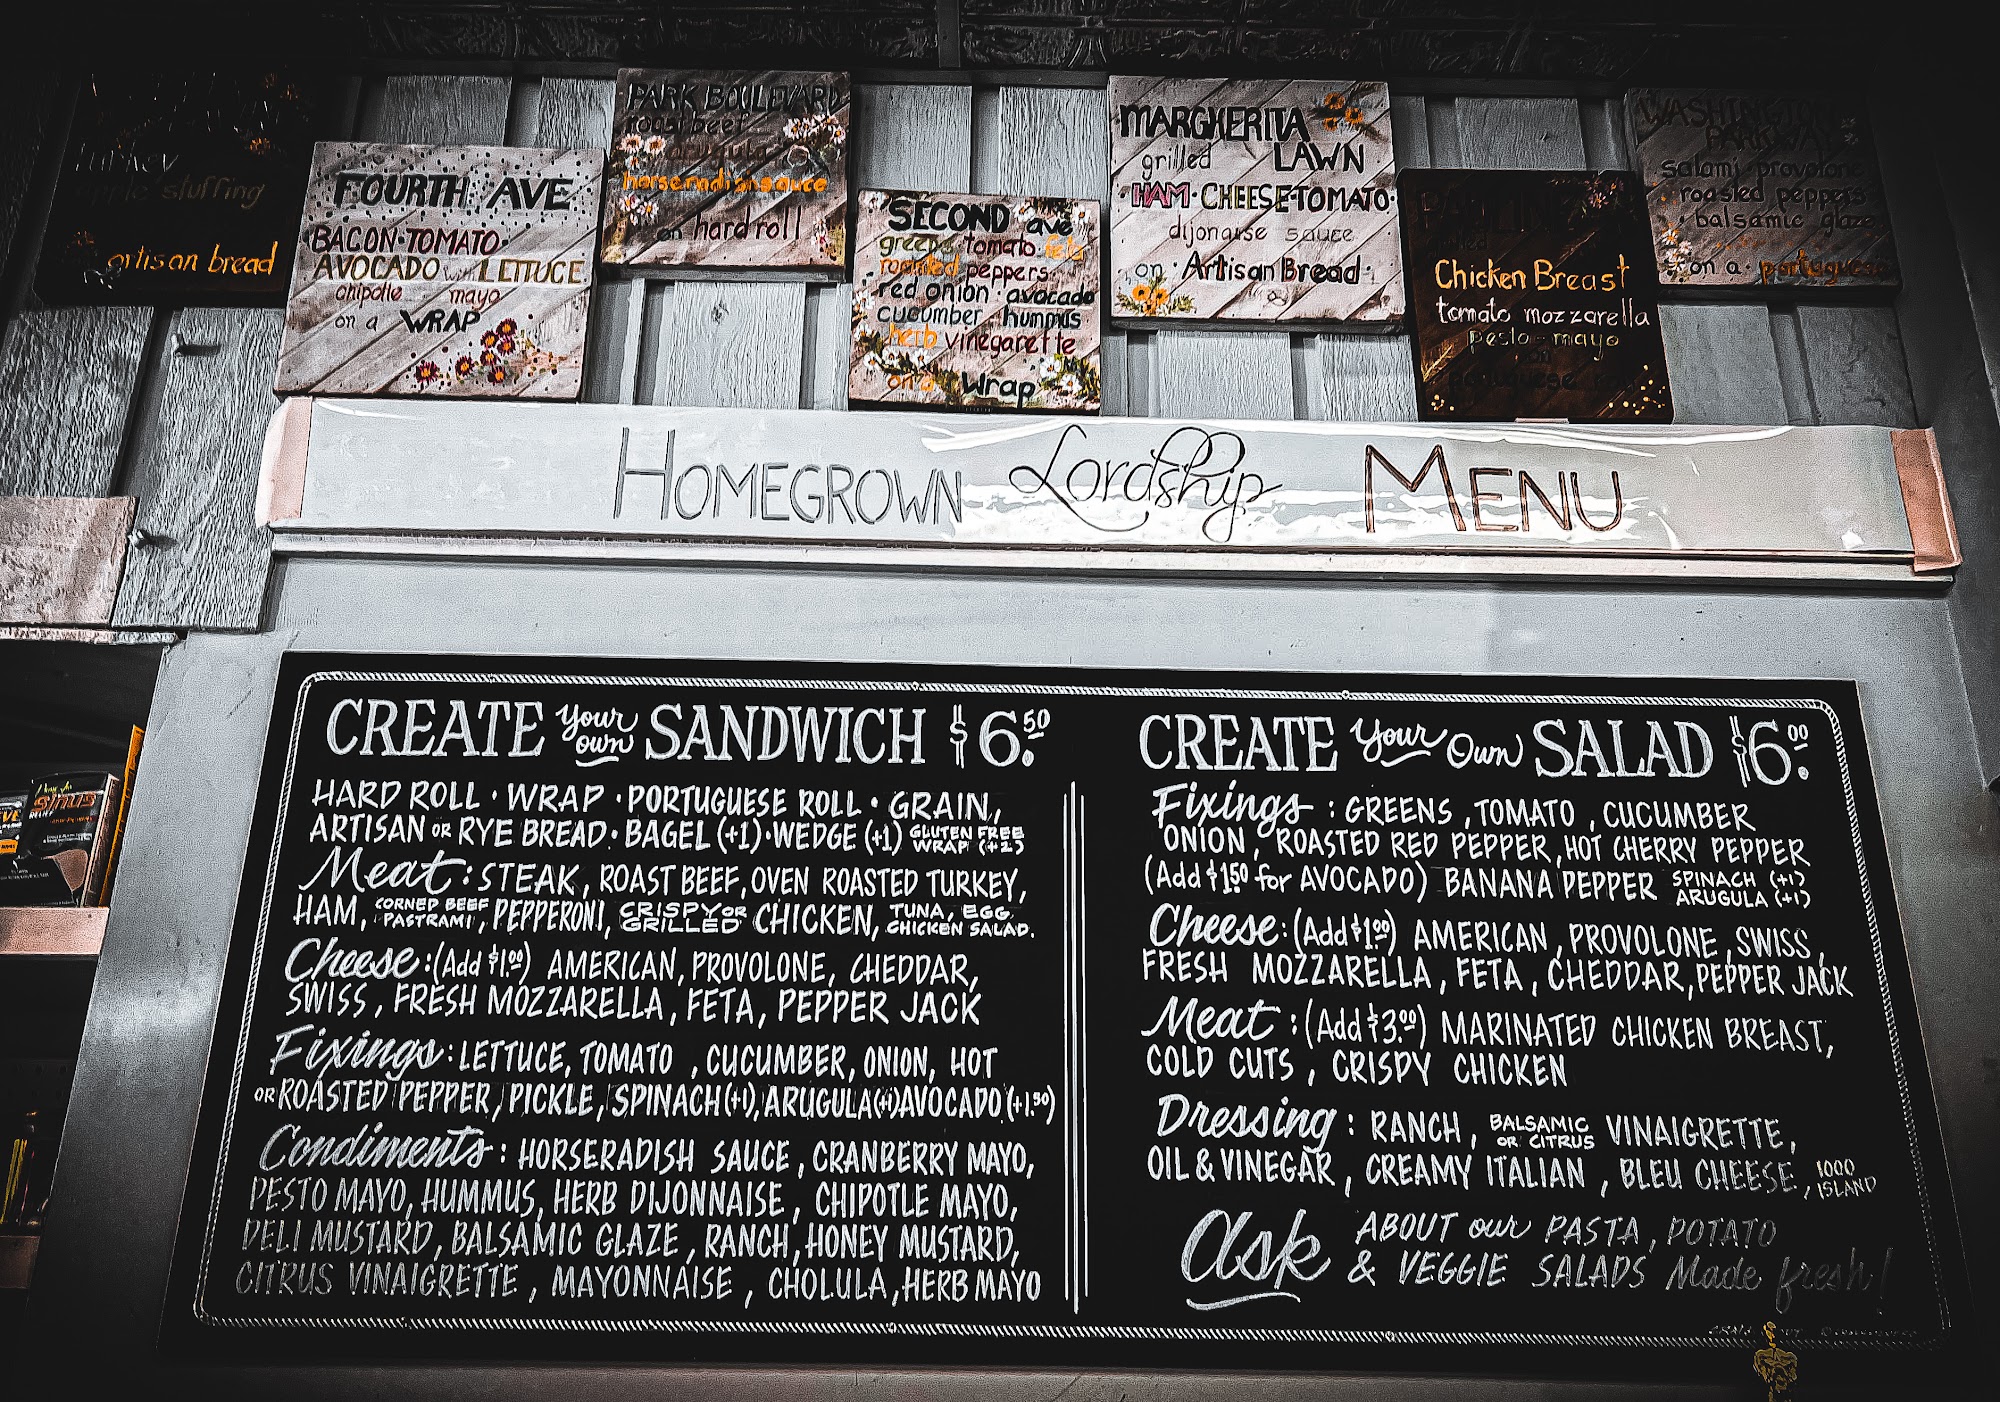 turkey
stuffing
artisan bread
FOURTH AVE
BACON·TOMATO·
AVOCADO with LETTUCE
chipotle mayo
on a WRAP
PARK BOULEVARD
roast beef
arugula
horseradish sauce
on hard roll
SECOND ave
greens tomato feta
roasted peppers
red onion · avocado
cucumber hummus
herb vinegarette
on a Wrap
MARGHERITA
grilled LAWN
HAM·CHEESE·TOMATO·
dijonaise sauce
on · Artisan Bread·
Chicken Breast
tomato mozzarella
pesto - mayo
on
portuguese
WASHINGTON
PARKWAY
salami·provolone
roasted peppers
balsamic glaze
on a · portuguese
HOMEGROWN Lordship MENU
SINUS
RELIEF
CREATE Your own SANDWICH $6.50
HARD ROLL · WRAP · PORTUGUESE ROLL · GRAIN,
ARTISAN OR RYE BREAD · BAGEL (+1) · WEDGE (+1) GLUTEN FREE WRAP (+2)
Meat : STEAK, ROAST BEEF, OVEN ROASTED TURKEY,
HAM, CORNED BEEF PASTRAMI, PEPPERONI, CRISPY OR GRILLED CHICKEN, TUNA, EGG, CHICKEN SALAD.
Cheese : (Add $1.00) AMERICAN, PROVOLONE, CHEDDAR,
SWISS, FRESH MOZZARELLA, FETA, PEPPER JACK
Fixings : LETTUCE, TOMATO , CUCUMBER, ONION, HOT
OR ROASTED PEPPER, PICKLE, SPINACH (+1), ARUGULA (+1) AVOCADO (+1.50)
Condiments : HORSERADISH SAUCE, CRANBERRY MAYO,
PESTO MAYO, HUMMUS, HERB DIJONNAISE, CHIPOTLE MAYO,
DELI MUSTARD, BALSAMIC GLAZE, RANCH, HONEY MUSTARD,
CITRUS VINAIGRETTE, MAYONNAISE, CHOLULA, HERB MAYO
CREATE Your Own SALAD $6.00
Fixings : GREENS, TOMATO, CUCUMBER
ONION, ROASTED RED PEPPER, HOT CHERRY PEPPER
(Add $1.50 for AVOCADO) BANANA PEPPER SPINACH (+1) ARUGULA (+1)
Cheese : (Add $1.00) AMERICAN, PROVOLONE, SWISS,
FRESH MOZZARELLA, FETA, CHEDDAR, PEPPER JACK
Meat : (Add $3.00) MARINATED CHICKEN BREAST,
COLD CUTS, CRISPY CHICKEN
Dressing : RANCH, BALSAMIC OR CITRUS VINAIGRETTE,
OIL & VINEGAR, CREAMY ITALIAN, BLEU CHEESE, 1000 ISLAND
Ask ABOUT our PASTA, POTATO
& VEGGIE SALADS Made fresh!